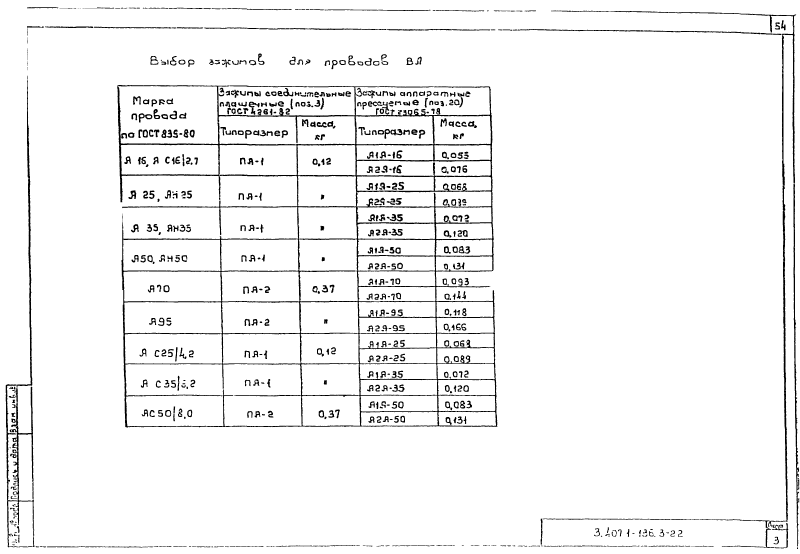 54
Выбор зажимов для проводов ВЛ
Марка провода по ГОСТ 839-80
Зажимы соединительные плашечные (поз.3) ГОСТ 4261-82
Зажимы аппаратные прессуемые (поз.20) ГОСТ 23065-78
Типоразмер Масса, кг Типоразмер Масса, кг
А 16, А С16/2,7 ПА-1 0,12 А1А-16 0,055
А2А-16 0,076
А 25, АН 25 ПА-1 " А1А-25 0,068
А2А-25 0,089
А 35, АН35 ПА-1 " А1А-35 0,072
А2А-35 0,120
А50, АН50 ПА-1 " А1А-50 0,083
А2А-50 0,131
А70 ПА-2 0,37 А1А-70 0,093
А2А-70 0,144
А95 ПА-2 " А1А-95 0,118
А2А-95 0,166
А С25/4,2 ПА-1 0,12 А1А-25 0,068
А2А-25 0,089
А С35/6,2 ПА-1 " А1А-35 0,072
А2А-35 0,120
АС50/8,0 ПА-2 0,37 А1А-50 0,083
А2А-50 0,131
Подпись и дата
Взам. инв.№
3.407.1-136.3-22
Лист
3